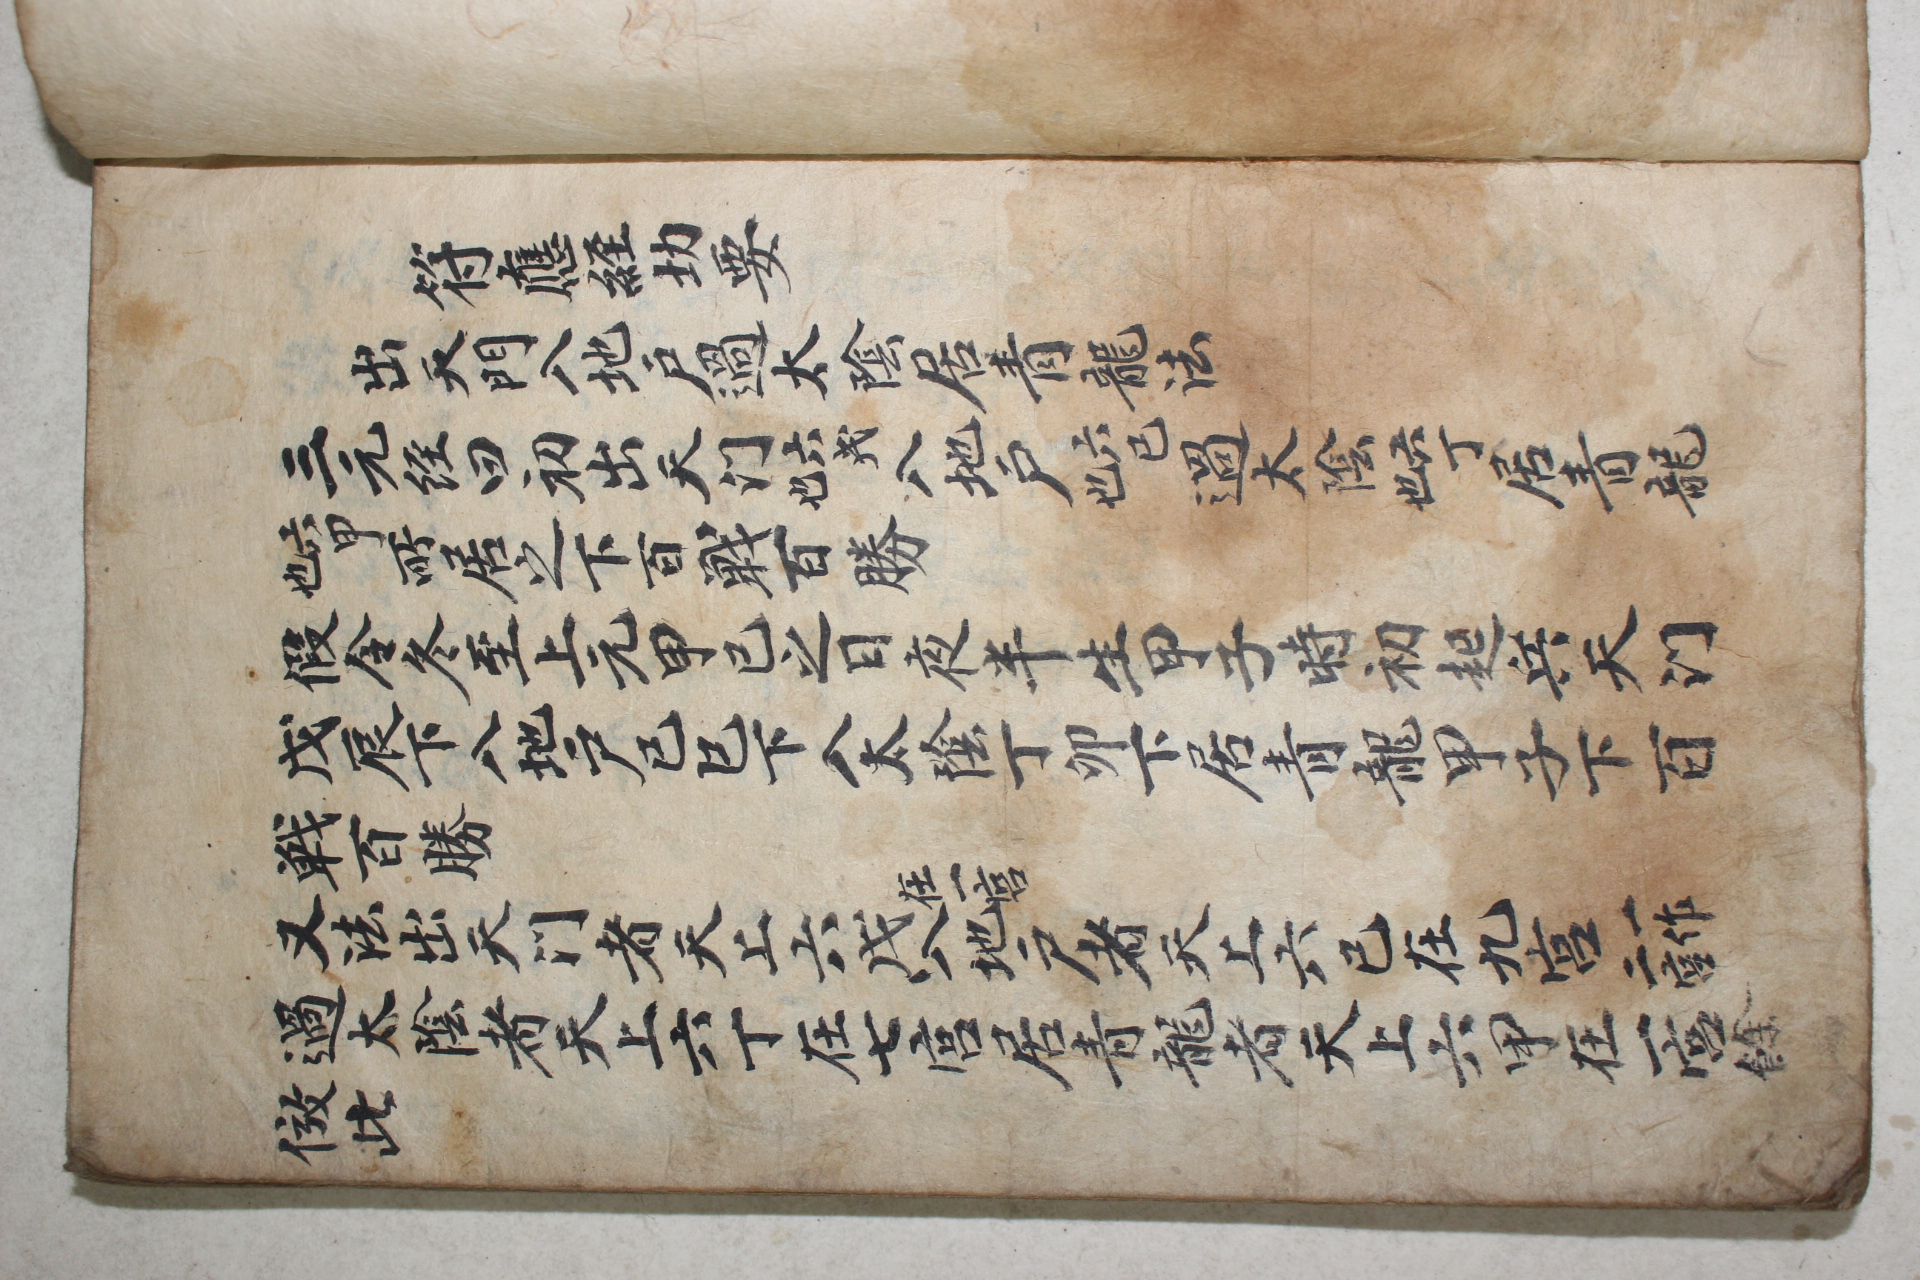 符應經功要
出天門入地戶過太陰居青龍法
三元経曰初出天门六戊也入地戶六己也過太陰六丁也居青龍
六甲也所居之下百戰百勝
假令冬至上元甲己之日夜半生甲子時初起兵天门
戊辰下入地戶己巳下入太陰丁卯下居青龍甲子下百
戰百勝
又法出天门者天上六戊在一宮入地戶者天上六己在九宮一作二宮
過太陰者天上六丁在七宮居青龍者天上六甲在一宮餘
倣此